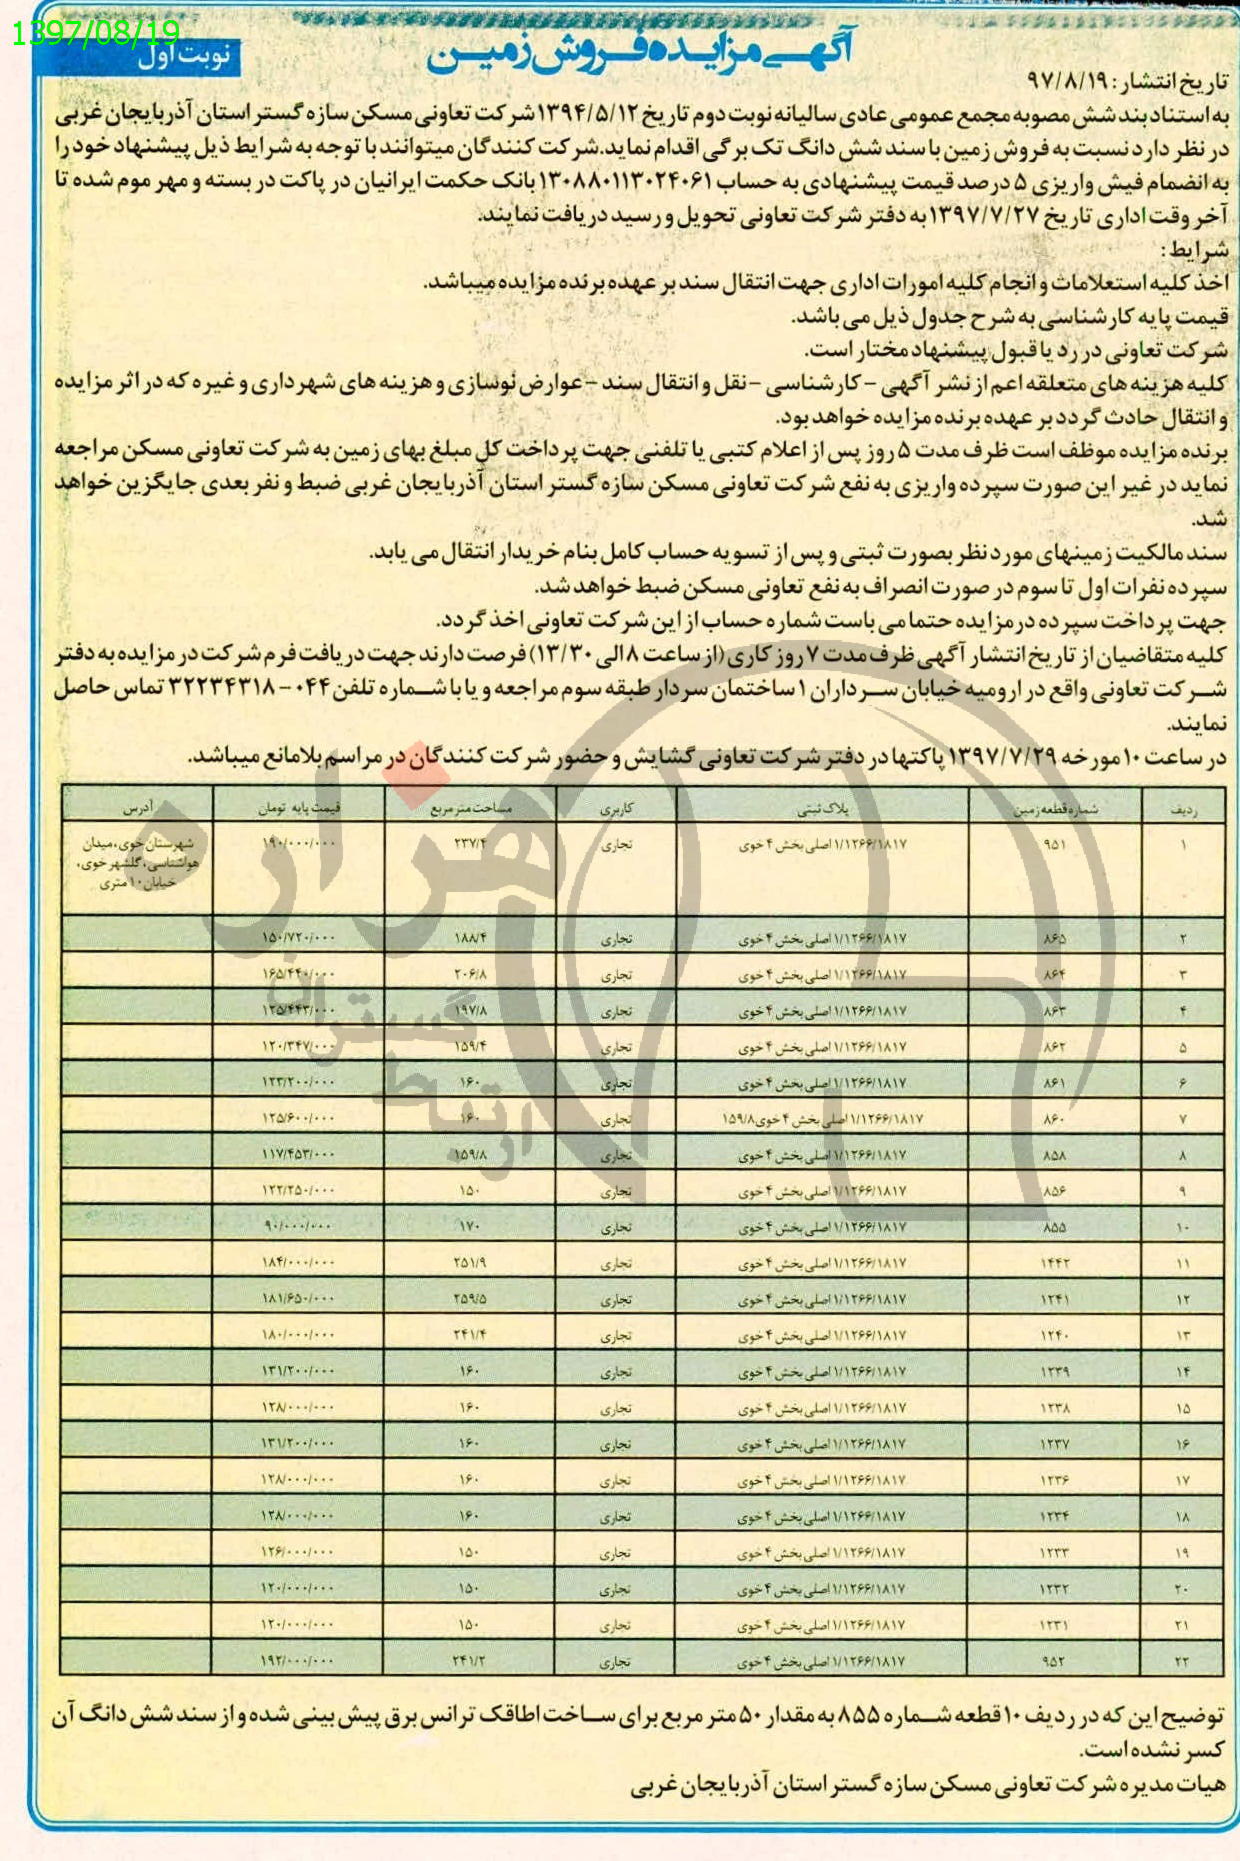 1397/08/19
نوبت اول
آگهی مزایده فروش زمین
تاریخ انتشار: ۹۷/۸/۱۹
به استناد بند شش مصوبه مجمع عمومی عادی سالیانه نوبت دوم تاریخ ۱۳۹۴/۵/۱۲ شرکت تعاونی مسکن سازه گستر استان آذربایجان غربی
در نظر دارد نسبت به فروش زمین با سند شش دانگ تک برگی اقدام نماید.شرکت کنندگان میتوانند با توجه به شرایط ذیل پیشنهاد خود را
به انضمام فیش واریزی ۵ درصد قیمت پیشنهادی به حساب ۱۳۰۸۸۰۱۱۳۰۲۴۰۶۱ بانک حکمت ایرانیان در پاکت در بسته و مهر موم شده تا
آخر وقت اداری تاریخ ۱۳۹۷/۷/۲۷ به دفتر شرکت تعاونی تحویل و رسید دریافت نمایند.
شرایط:
اخذ کلیه استعلامات و انجام کلیه امورات اداری جهت انتقال سند بر عهده برنده مزایده میباشد.
قیمت پایه کارشناسی به شرح جدول ذیل می باشد.
شرکت تعاونی در رد یا قبول پیشنهاد مختار است.
کلیه هزینه های متعلقه اعم از نشر آگهی - کارشناسی - نقل و انتقال سند - عوارض نوسازی و هزینه های شهرداری و غیره که در اثر مزایده
و انتقال حادث گردد بر عهده برنده مزایده خواهد بود.
برنده مزایده موظف است ظرف مدت ۵ روز پس از اعلام کتبی یا تلفنی جهت پرداخت کل مبلغ بهای زمین به شرکت تعاونی مسکن مراجعه
نماید در غیر این صورت سپرده واریزی به نفع شرکت تعاونی مسکن سازه گستر استان آذربایجان غربی ضبط و نفر بعدی جایگزین خواهد
شد.
سند مالکیت زمینهای مورد نظر بصورت ثبتی و پس از تسویه حساب کامل بنام خریدار انتقال می یابد.
سپرده نفرات اول تا سوم در صورت انصراف به نفع تعاونی مسکن ضبط خواهد شد.
جهت پرداخت سپرده در مزایده حتما می باست شماره حساب از این شرکت تعاونی اخذ گردد.
کلیه متقاضیان از تاریخ انتشار آگهی ظرف مدت ۷ روز کاری (از ساعت ۸ الی ۱۳/۳۰) فرصت دارند جهت دریافت فرم شرکت در مزایده به دفتر
شرکت تعاونی واقع در ارومیه خیابان سرداران ۱ ساختمان سردار طبقه سوم مراجعه و یا با شماره تلفن ۰۴۴-۳۲۲۳۴۳۱۸ تماس حاصل
نمایند.
در ساعت ۱۰ مورخه ۱۳۹۷/۷/۲۹ پاکتها در دفتر شرکت تعاونی گشایش و حضور شرکت کنندگان در مراسم بلامانع میباشد.
ردیف شماره قطعه زمین پلاک ثبتی کاربری مساحت متر مربع قیمت پایه تومان آدرس
۱ ۹۵۱ ۱/۱۲۶۶/۱۸۱۷ اصلی بخش ۴ خوی تجاری ۲۳۷/۴ ۱۹۰/۰۰۰/۰۰۰ شهرستان خوی، میدان
هواشناسی، گلشهر خوی،
خیابان ۱۰ متری
۲ ۸۶۵ ۱/۱۲۶۶/۱۸۱۷ اصلی بخش ۴ خوی تجاری ۱۸۸/۴ ۱۵۰/۷۲۰/۰۰۰
۳ ۸۶۴ ۱/۱۲۶۶/۱۸۱۷ اصلی بخش ۴ خوی تجاری ۲۰۶/۸ ۱۶۵/۴۴۰/۰۰۰
۴ ۸۶۳ ۱/۱۲۶۶/۱۸۱۷ اصلی بخش ۴ خوی تجاری ۱۹۷/۸ ۱۲۵/۴۴۳/۰۰۰
۵ ۸۶۲ ۱/۱۲۶۶/۱۸۱۷ اصلی بخش ۴ خوی تجاری ۱۵۹/۴ ۱۲۰/۳۴۷/۰۰۰
۶ ۸۶۱ ۱/۱۲۶۶/۱۸۱۷ اصلی بخش ۴ خوی تجاری ۱۶۰ ۱۲۳/۲۰۰/۰۰۰
۷ ۸۶۰ ۱/۱۲۶۶/۱۸۱۷ اصلی بخش ۴ خوی ۱۵۹/۸ تجاری ۱۶۰ ۱۲۵/۶۰۰/۰۰۰
۸ ۸۵۸ ۱/۱۲۶۶/۱۸۱۷ اصلی بخش ۴ خوی تجاری ۱۵۹/۸ ۱۱۷/۴۵۳/۰۰۰
۹ ۸۵۶ ۱/۱۲۶۶/۱۸۱۷ اصلی بخش ۴ خوی تجاری ۱۵۰ ۱۲۲/۲۵۰/۰۰۰
۱۰ ۸۵۵ ۱/۱۲۶۶/۱۸۱۷ اصلی بخش ۴ خوی تجاری ۱۷۰ ۹۰/۰۰۰/۰۰۰
۱۱ ۱۴۴۲ ۱/۱۲۶۶/۱۸۱۷ اصلی بخش ۴ خوی تجاری ۲۵۱/۹ ۱۸۴/۰۰۰/۰۰۰
۱۲ ۱۲۴۱ ۱/۱۲۶۶/۱۸۱۷ اصلی بخش ۴ خوی تجاری ۲۵۹/۵ ۱۸۱/۶۵۰/۰۰۰
۱۳ ۱۲۴۰ ۱/۱۲۶۶/۱۸۱۷ اصلی بخش ۴ خوی تجاری ۲۴۱/۴ ۱۸۰/۰۰۰/۰۰۰
۱۴ ۱۲۳۹ ۱/۱۲۶۶/۱۸۱۷ اصلی بخش ۴ خوی تجاری ۱۶۰ ۱۳۱/۲۰۰/۰۰۰
۱۵ ۱۲۳۸ ۱/۱۲۶۶/۱۸۱۷ اصلی بخش ۴ خوی تجاری ۱۶۰ ۱۲۸/۰۰۰/۰۰۰
۱۶ ۱۲۳۷ ۱/۱۲۶۶/۱۸۱۷ اصلی بخش ۴ خوی تجاری ۱۶۰ ۱۳۱/۲۰۰/۰۰۰
۱۷ ۱۲۳۶ ۱/۱۲۶۶/۱۸۱۷ اصلی بخش ۴ خوی تجاری ۱۶۰ ۱۲۸/۰۰۰/۰۰۰
۱۸ ۱۲۳۴ ۱/۱۲۶۶/۱۸۱۷ اصلی بخش ۴ خوی تجاری ۱۶۰ ۱۲۸/۰۰۰/۰۰۰
۱۹ ۱۲۳۳ ۱/۱۲۶۶/۱۸۱۷ اصلی بخش ۴ خوی تجاری ۱۵۰ ۱۲۶/۰۰۰/۰۰۰
۲۰ ۱۲۳۲ ۱/۱۲۶۶/۱۸۱۷ اصلی بخش ۴ خوی تجاری ۱۵۰ ۱۲۰/۰۰۰/۰۰۰
۲۱ ۱۲۳۱ ۱/۱۲۶۶/۱۸۱۷ اصلی بخش ۴ خوی تجاری ۱۵۰ ۱۲۰/۰۰۰/۰۰۰
۲۲ ۹۵۲ ۱/۱۲۶۶/۱۸۱۷ اصلی بخش ۴ خوی تجاری ۲۴۱/۲ ۱۹۲/۰۰۰/۰۰۰
هزاره
گستران
ارتباط
توضیح این که در ردیف ۱۰ قطعه شماره ۸۵۵ به مقدار ۵۰ متر مربع برای ساخت اطاقک ترانس برق پیش بینی شده و از سند شش دانگ آن
کسر نشده است.
هیات مدیره شرکت تعاونی مسکن سازه گستر استان آذربایجان غربی